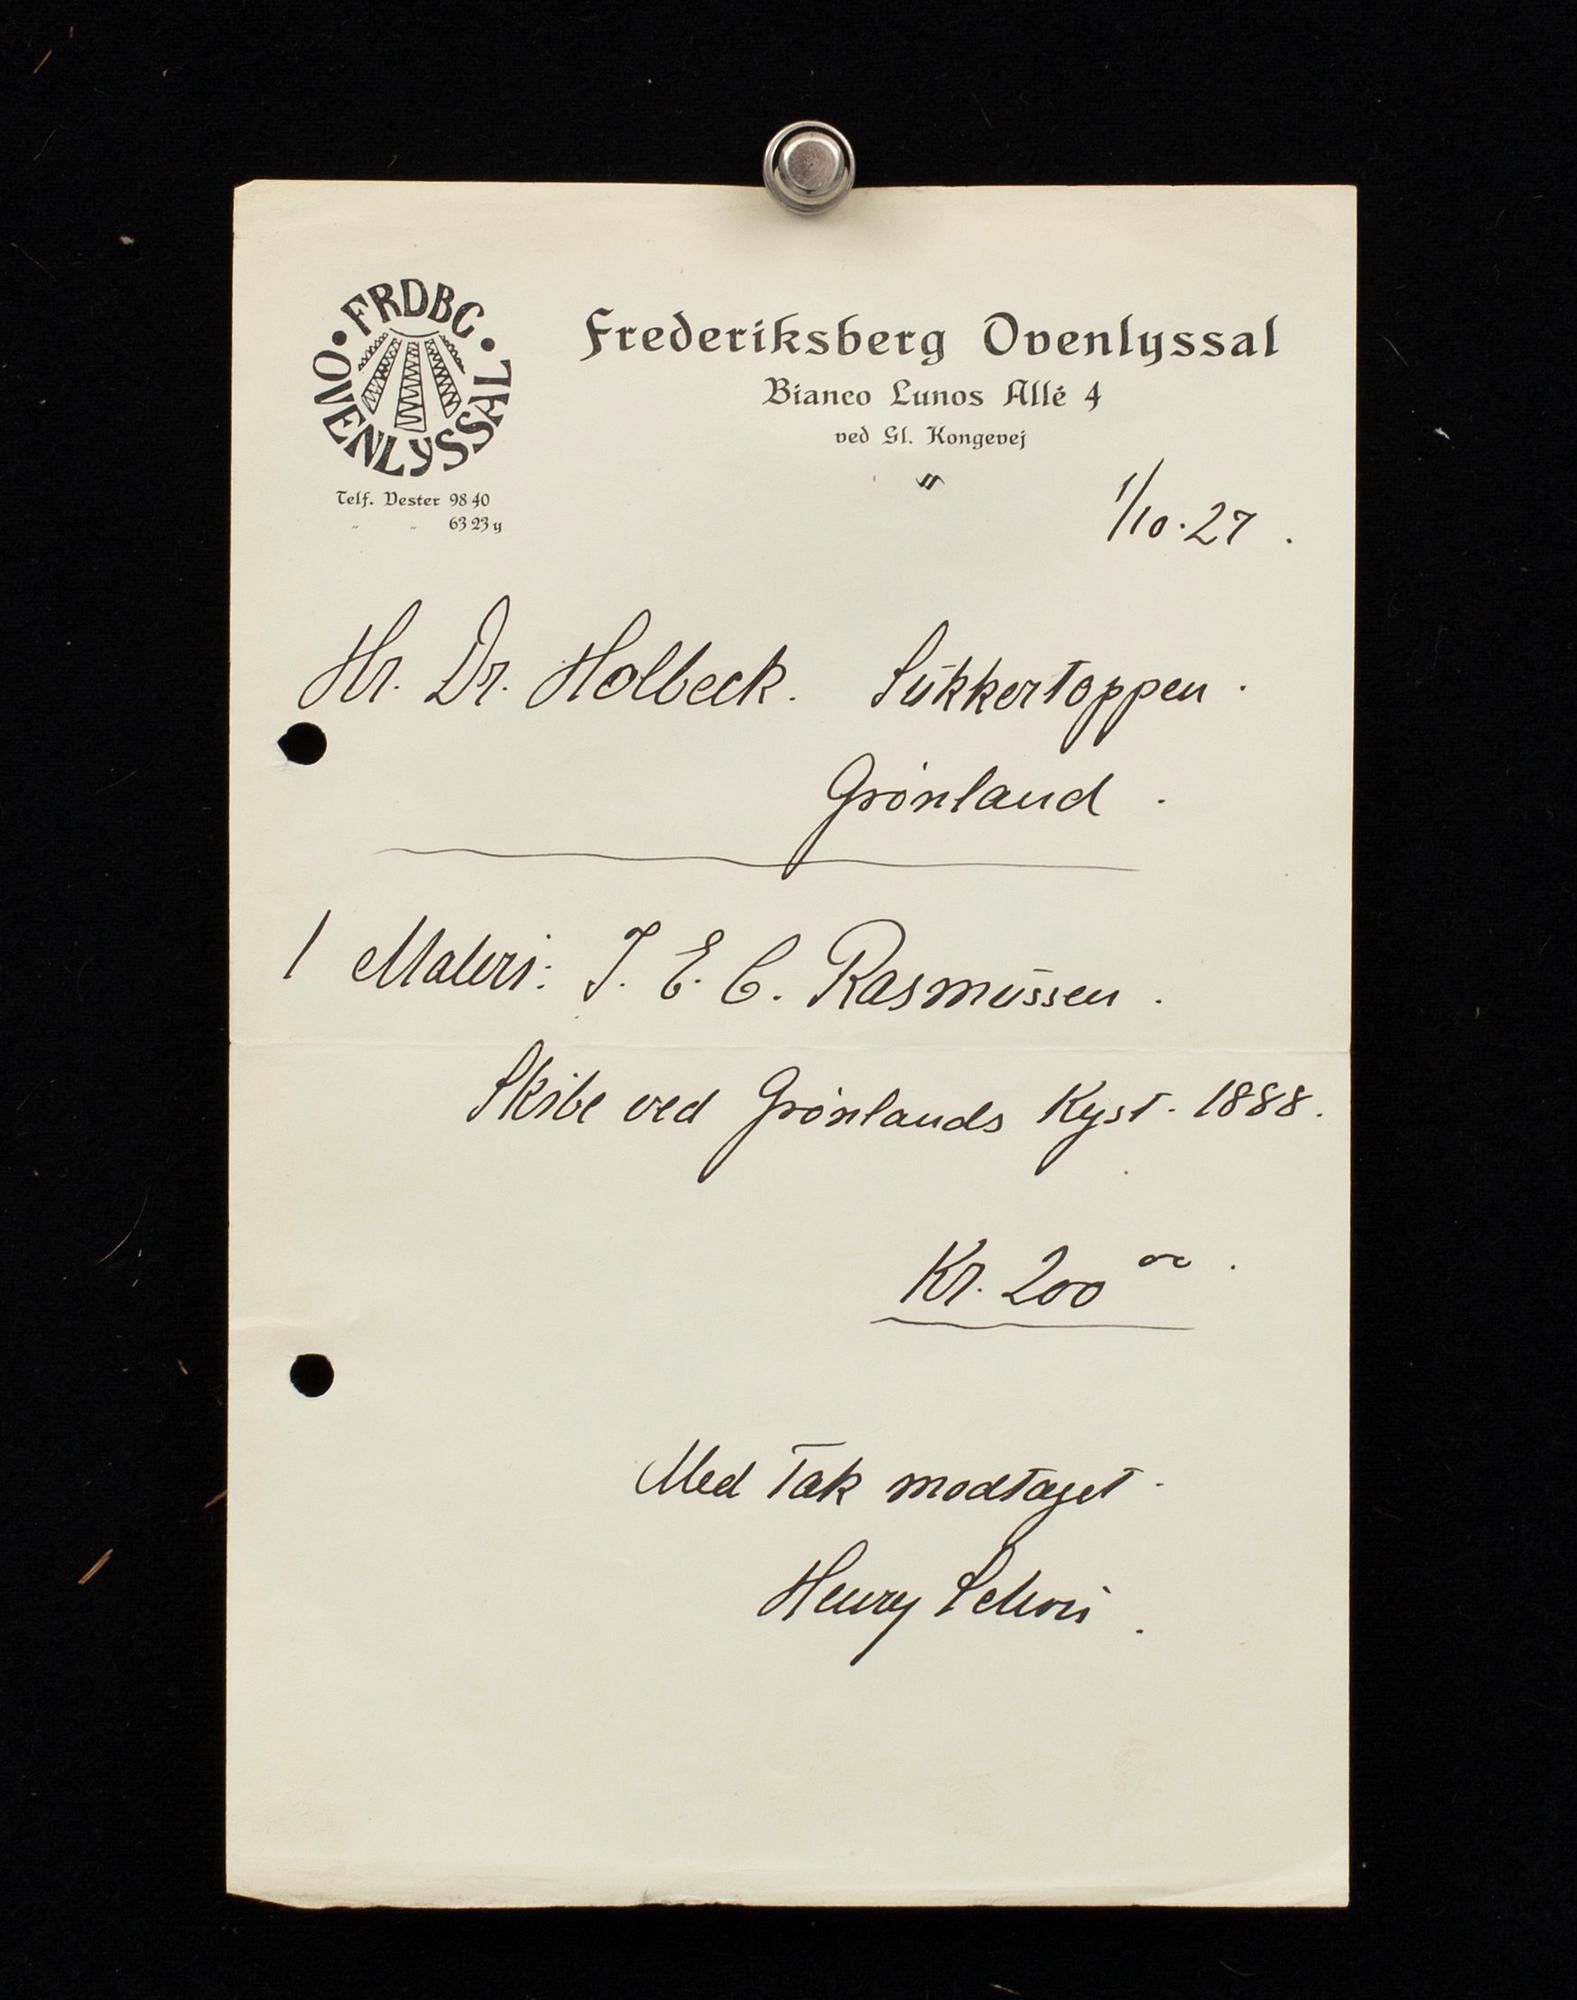 FRDBG • OVENLYSSAL •
Telf. Vester 98 40
" " 63 23 y
Frederiksberg Ovenlyssal
Bianco Lunos Allé 4
ved Gl. Kongevej
1/10.27.
Hr. Dr. Holbeck. Sukkertoppen.
Grönland.
1 Maleri: J. E. C. Rasmussen.
Skibe ved Grönlands Kyst. 1888.
Kr. 200 00.
Med Tak modtaget.
Henry